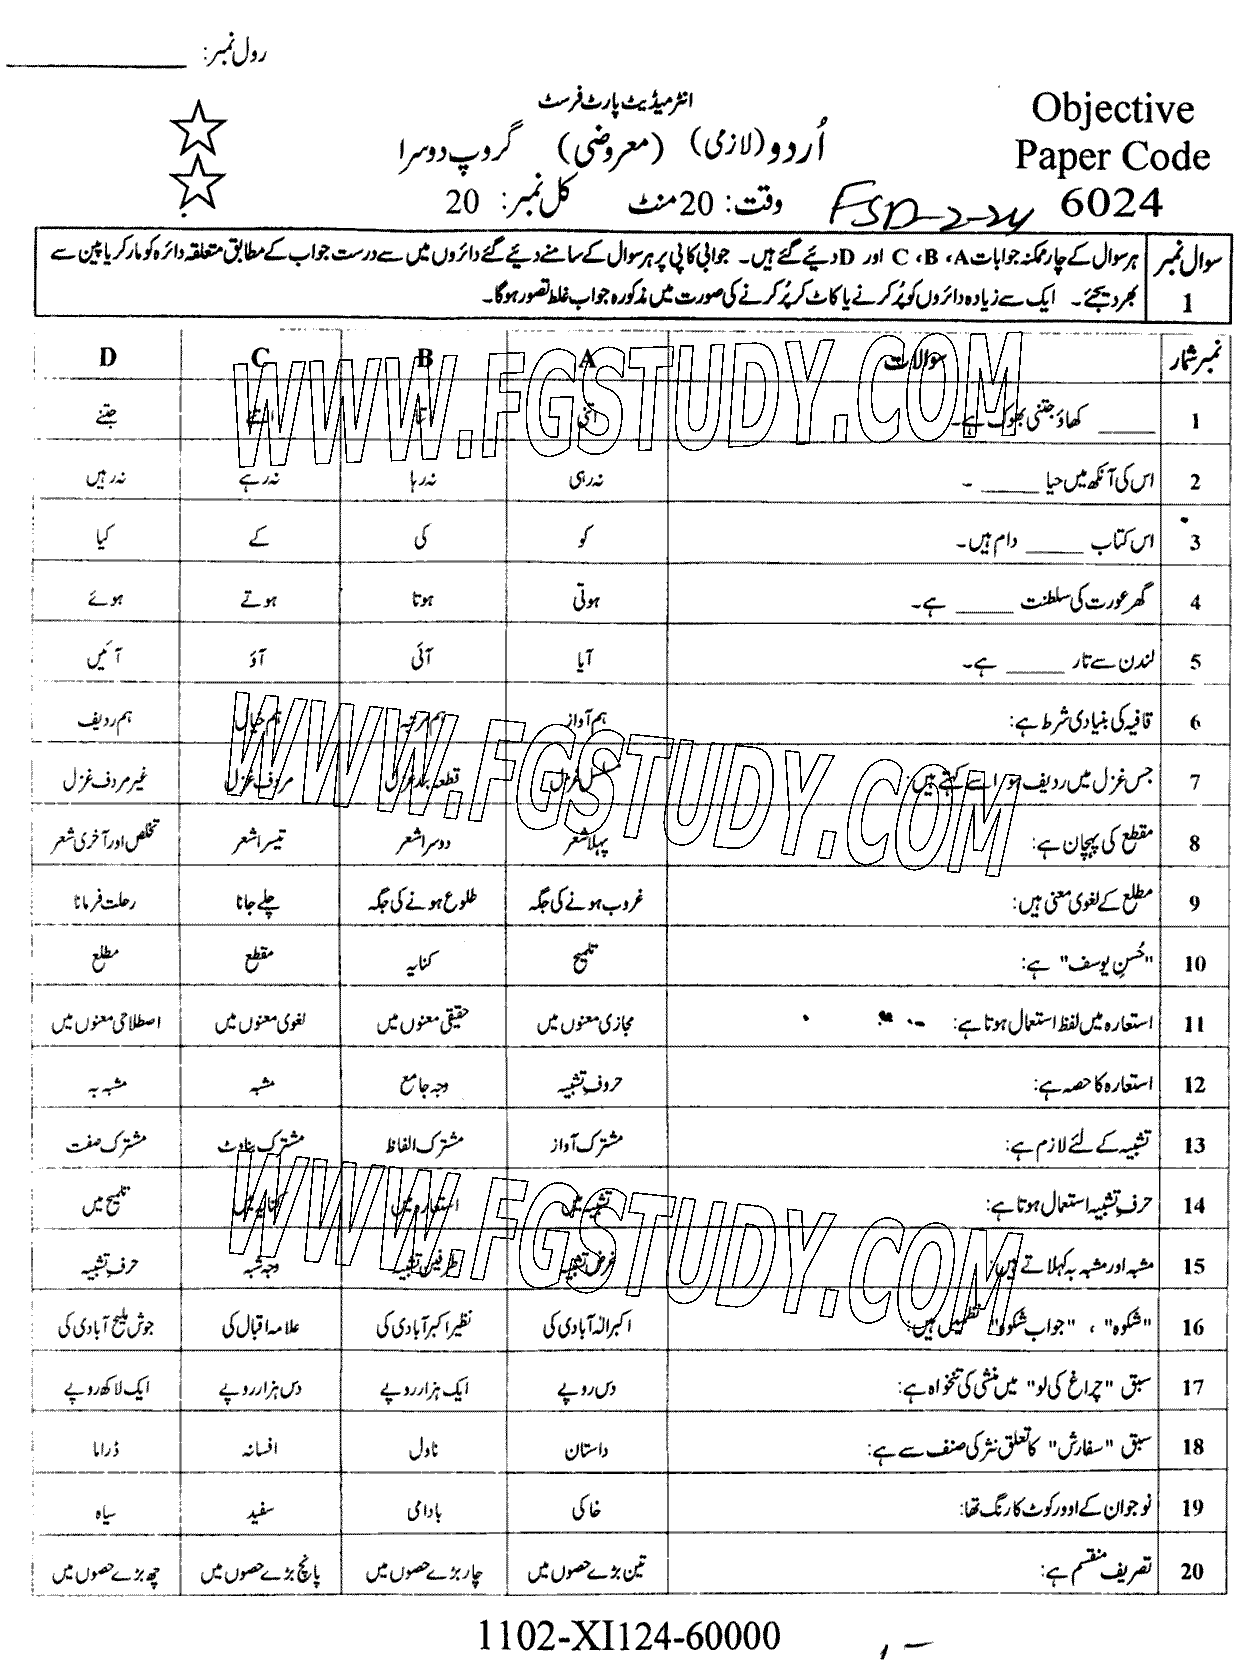 رول نمبر: ________
انٹرمیڈیٹ پارٹ فرسٹ
Objective
Paper Code
6024
اُردو (لازمی) (معروضی) گروپ دوسرا
وقت: 20 منٹ کل نمبر: 20
FSD-2-24
سوال نمبر 1
ہر سوال کے چار ممکنہ جوابات A، B، C اور D دیئے گئے ہیں۔ جوابی کاپی پر ہر سوال کے سامنے دیئے گئے دائروں میں سے درست جواب کے مطابق متعلقہ دائرہ کو مارکر یا پین سے
بھر دیجئے۔ ایک سے زیادہ دائروں کو پُر کرنے یا کاٹ کر پُر کرنے کی صورت میں مذکورہ جواب غلط تصور ہوگا۔
نمبر شمار سوالات A B C D
1 _____ کھاؤ جتنی بھوک ہے۔ اتنی جتنے
2 اس کی آنکھ میں حیا _____ ۔ نہ رہی نہ رہا نہ رہے نہ رہیں
3 اس کتاب _____ دام ہیں۔ کو کی کے کیا
4 گھر عورت کی سلطنت _____ ہے۔ ہوتی ہوتا ہوتے ہوئے
5 لندن سے تار _____ ہے۔ آیا آئی آؤ آئیں
6 قافیہ کی بنیادی شرط ہے: ہم آواز ہم مرتبہ ہم خیال ہم ردیف
7 جس غزل میں ردیف ہو اسے کہتے ہیں: مسلسل غزل قطعہ بند غزل مردف غزل غیر مردف غزل
8 مقطع کی پہچان ہے: پہلا شعر دوسرا شعر تیسرا شعر تخلص اور آخری شعر
9 مطلع کے لغوی معنی ہیں: غروب ہونے کی جگہ طلوع ہونے کی جگہ چلے جانا رحلت فرمانا
10 "حُسنِ یوسف" ہے: تلمیح کنایہ مقطع مطلع
11 استعارہ میں لفظ استعمال ہوتا ہے: مجازی معنوں میں حقیقی معنوں میں لغوی معنوں میں اصطلاحی معنوں میں
12 استعارہ کا حصہ ہے: حروفِ تشبیہ وجہ جامع مشبہ مشبہ بہ
13 تشبیہ کے لئے لازم ہے: مشترک آواز مشترک الفاظ مشترک بناوٹ مشترک صفت
14 حرفِ تشبیہ استعمال ہوتا ہے: تشبیہ میں استعارہ میں کنایہ میں تلمیح میں
15 مشبہ اور مشبہ بہ کہلاتے ہیں: غرض تشبیہ طرفین تشبیہ وجہ شبہ حرفِ تشبیہ
16 "شکوہ"، "جواب شکوہ" نظمیں ہیں: اکبر الٰہ آبادی کی نظیر اکبر آبادی کی علامہ اقبال کی جوش ملیح آبادی کی
17 سبق "چراغ کی لو" میں منشی کی تنخواہ ہے: دس روپے ایک ہزار روپے دس ہزار روپے ایک لاکھ روپے
18 سبق "سفارش" کا تعلق نثر کی صنف سے ہے: داستان ناول افسانہ ڈراما
19 نوجوان کے اوورکوٹ کا رنگ تھا: خاکی بادامی سفید سیاہ
20 تصریف منقسم ہے: تین بڑے حصوں میں چار بڑے حصوں میں پانچ بڑے حصوں میں چھ بڑے حصوں میں
WWW.FGSTUDY.COM
WWW.FGSTUDY.COM
WWW.FGSTUDY.COM
1102-XI124-60000